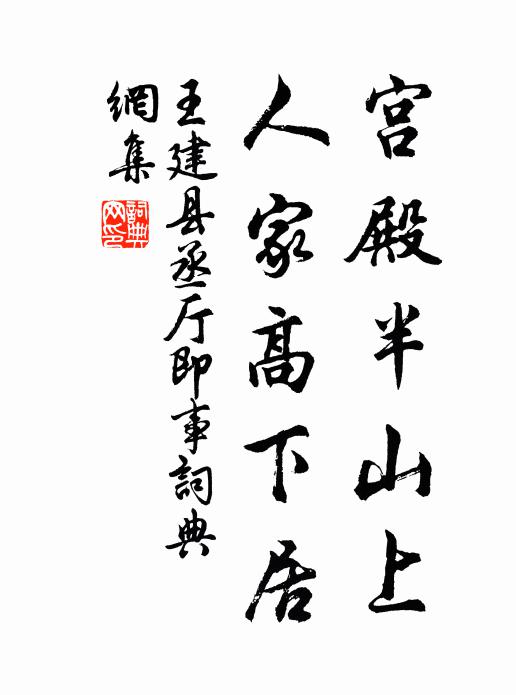 宫殿半山上
人家高下居
王建县丞厅即事詞典
網集
詞典
网印